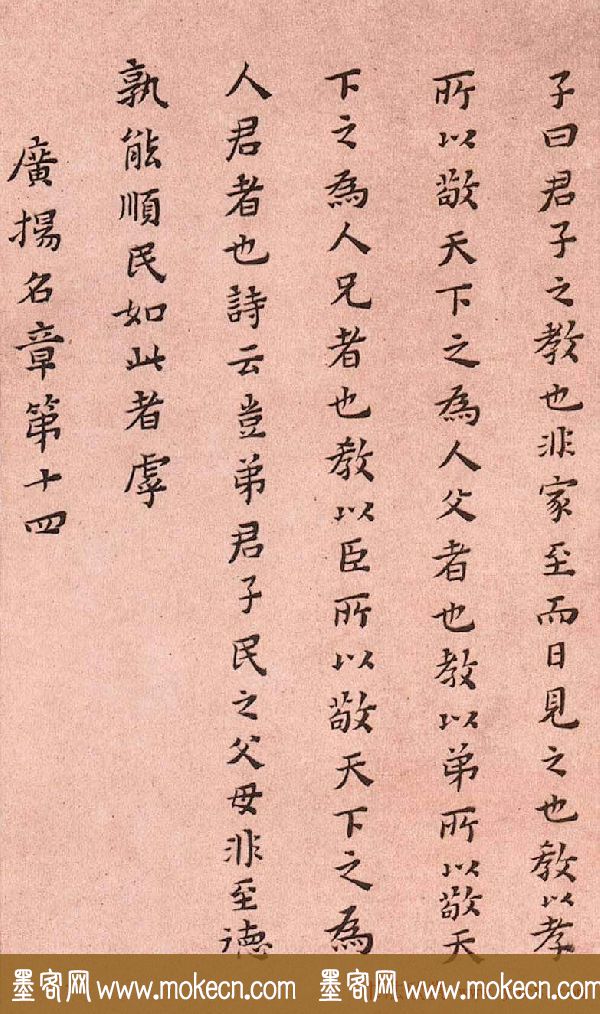 子曰君子之教也非家至而日見之也教以孝
所以敬天下之為人父者也教以弟所以敬天
下之為人兄者也教以臣所以敬天下之為
人君者也詩云豈弟君子民之父母非至德
孰能順民如此者虖
廣揚名章第十四
墨客网 www.mokecn.com 墨客网 www.mokecn.com